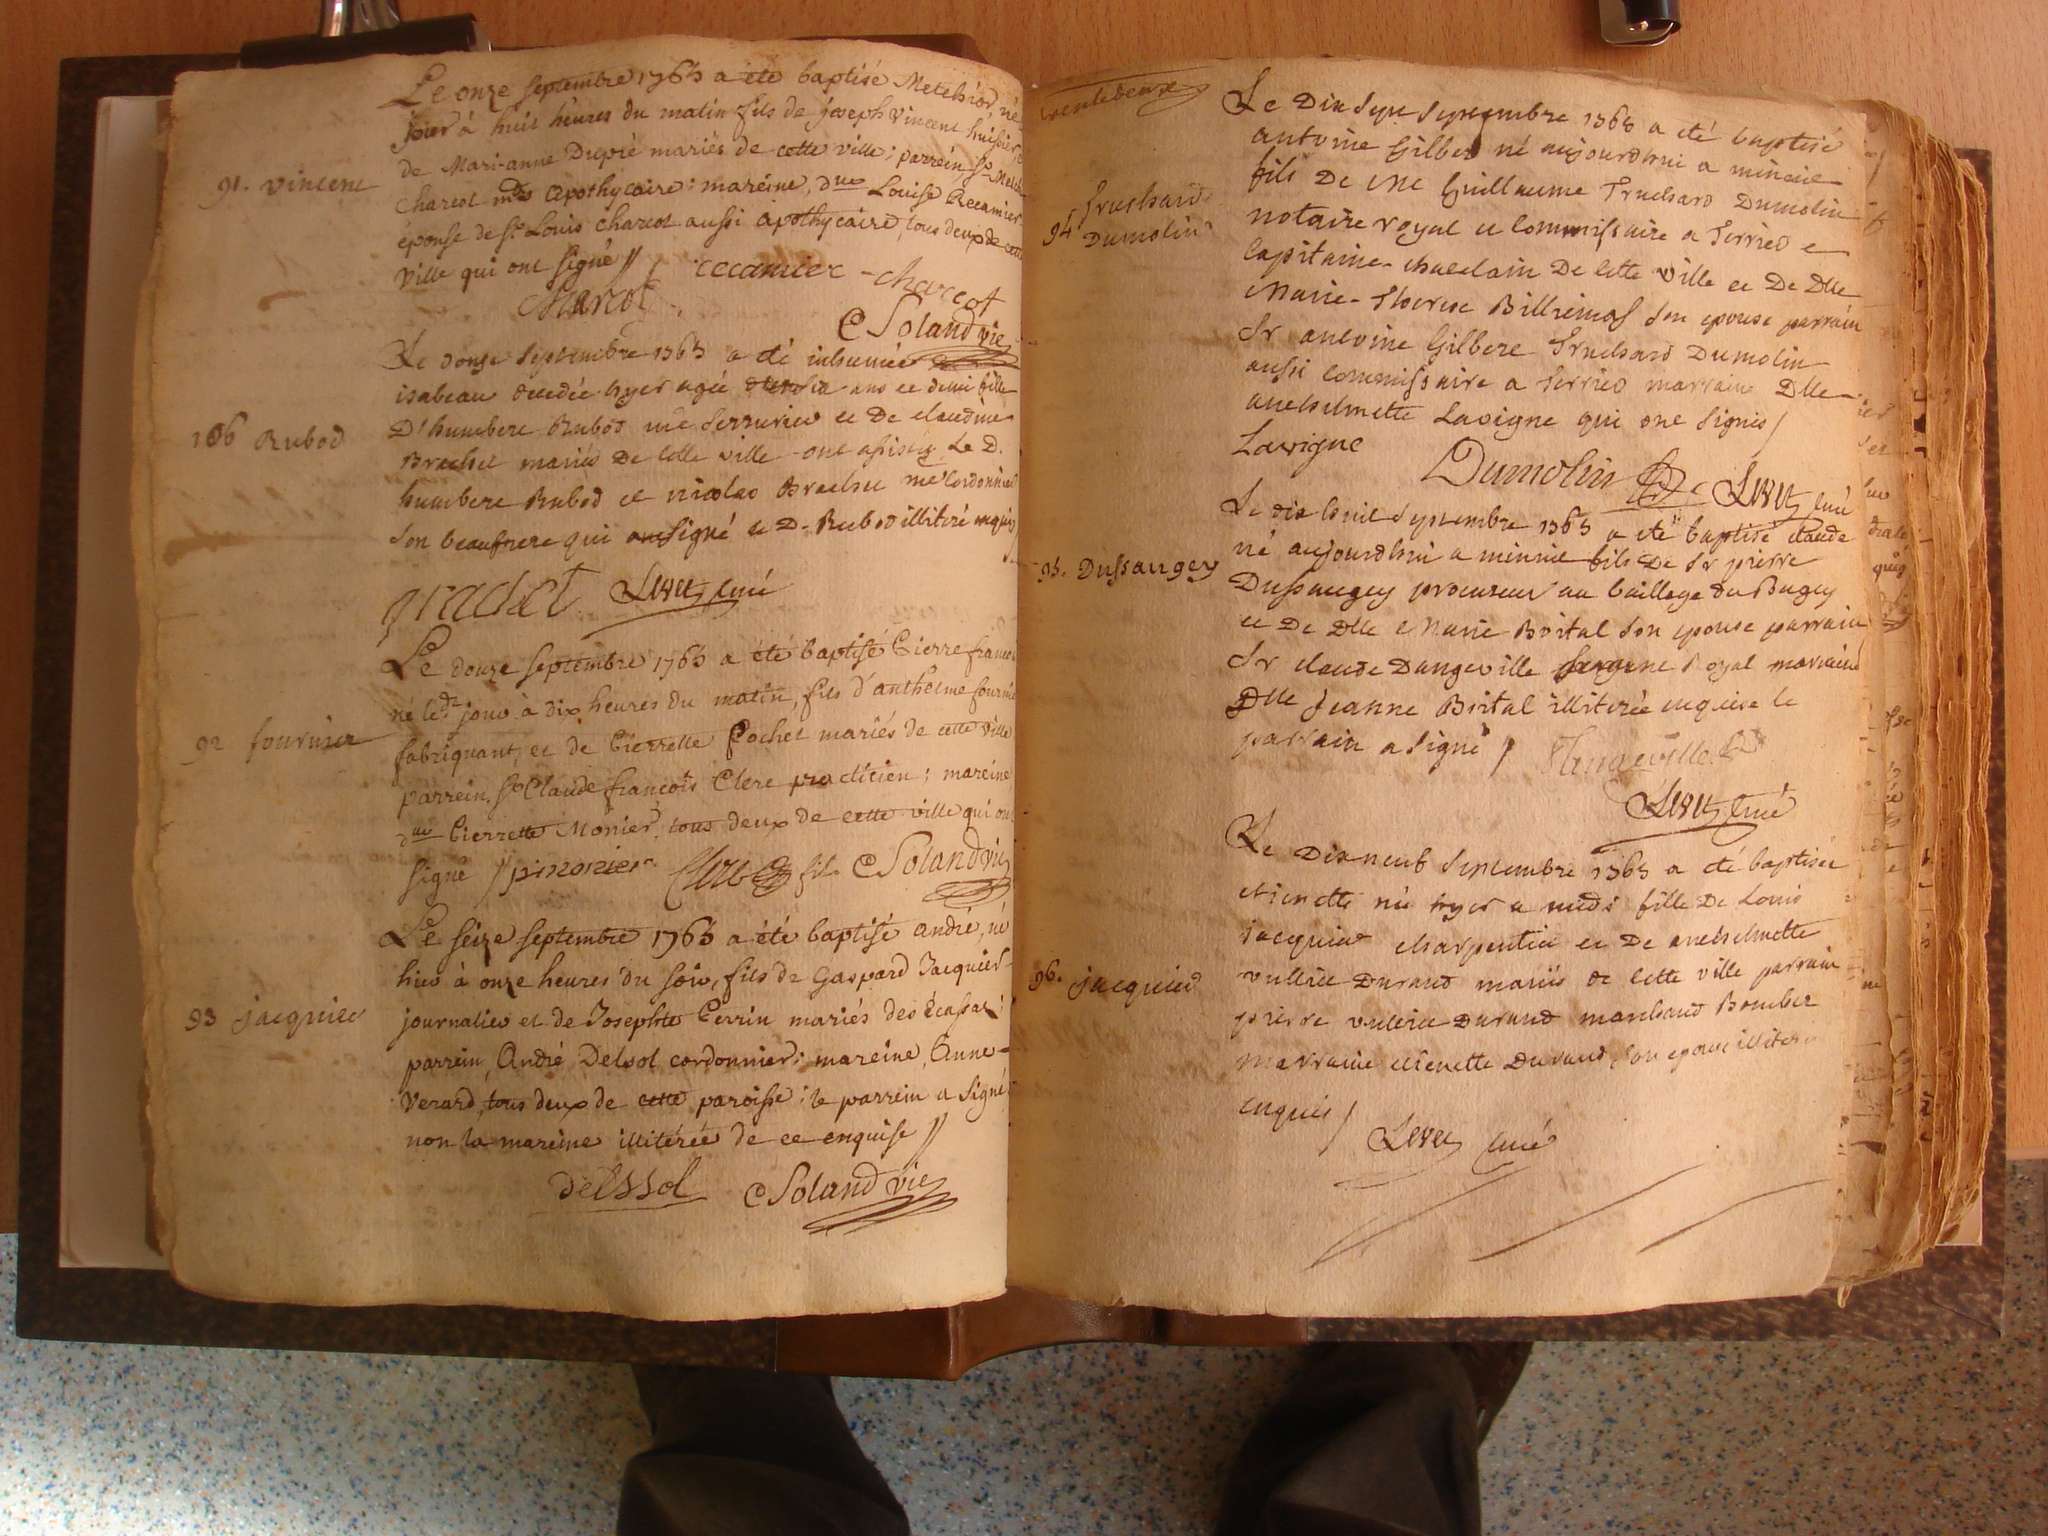 Le onze septembre 1763 a été baptisé Melchior, né
hier à huit heures du matin fils de joseph Vincent huissier
91. vincent
de Mari-anne Dupré mariés de cette ville; parrein, Sr Melch
Charcot md Apothycaire: mareine, dlle Louise Recamier
épouse de Sr Louis Charcot aussi apothycaire, tous deux de cette
Ville qui ont signé //
recamier - charcot
Charcot
C Soland vic
Le douze septembre 1763 a été inhumée
isabeau decedée hyer agée ans et demi fille
106 Rubod
D'humbert Rubod me Serrurier et De claudine
Brachet mariés De cette ville - ont assisté Le D.
humbert Rubod et nicolas Brachet me Cordonnier
son beaufrere qui a signé et D. Rubod illiteré enquis
Brachet Livet curé
Le douze septembre 1763 a été baptisé Pierre francois
né led. jour à dix heures du matin, fils d'anthelme fournier
92 fournier
fabriquant, et de Pierrette Pochet mariés de cette ville
parrein, Sr Claude françois Clerc practicien; mareine
dlle Pierrette Monier, tous deux de cette ville qui ont
signé // p monier Clerc fils C Soland vic
Le seize septembre 1763 a été baptisé andré, né
hier à onze heures du soir, fils de Gaspard Jacquier
93 jacquier
journalier et de Josephte Perrin mariés des écassaz;
parrein, André Delsol cordonnier; mareine, Anne
Verard, tous deux de cette paroisse; le parrein a signé
non la mareine illitérée de ce enquise //
delssol C Soland vic
trentedeux
Le Dix sept Septembre 1763 a été baptisé
antoine Gilbert né aujourdhui a minuit
94 Truchard
Dumolin
fils De Me Guillaume Truchard Dumolin
notaire royal et Commissaire a Terrier
Capitaine chatelain De cette ville et De Dlle
Marie-Therese Billiemas son epouse parrain
Sr antoine Gilbert Truchard Dumolin
aussi Commissaire a Terrier marraine Dlle
anthelmette Lavigne qui ont signés /
Lavigne Dumolin Livet curé
Le dix huit Septembre 1763 a été baptisé claude
né aujourdhui a minuit fils De Sr pierre
95. Dussaugey
Dussaugey procureur au baillage du Bugey
et De Dlle Marie Boital son epouse parrain
Sr claude Dangeville Sergent Royal marraine
Dlle Jeanne Boital illiterée enquise le
parrain a signé / Dangeville
Livet curé
Le Dix neuf Septembre 1763 a été baptisée
etienette née hyer a midi fille De Louis
jacquier charpentier et De anthelmette
96. jacquier
vulliet Durand mariés de cette ville parrain
pierre vulliet Durand marchand
marraine etienette Durand son epouse illiterés
enquis /
Livet curé